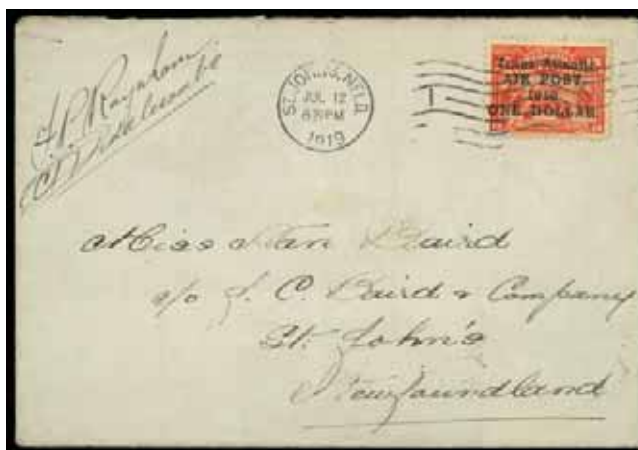 F.P. Raynham
ST. JOHN'S, NFLD.
JUL 12
6 PM
1919
Trans-Atlantic
AIR POST,
1919
ONE DOLLAR.
Miss Baird
c/o J. C. Baird & Company
St. John's
Newfoundland